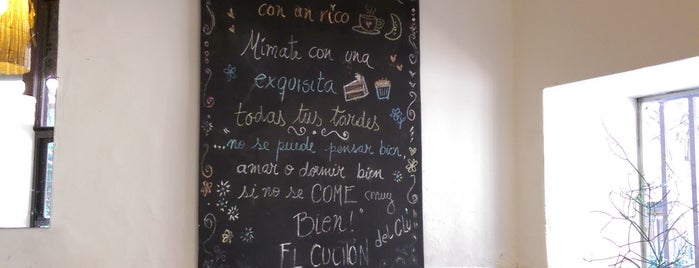 con un rico
Mímate con una
exquisita
"todas tus tardes
...no se puede pensar bien,
amar o dormir bien
si no se COME muy
Bien!"
EL CUCHÓN del Clu